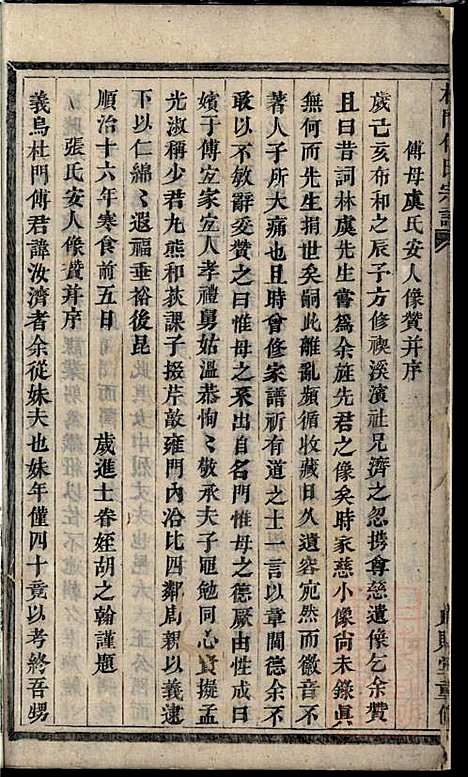 傅母虞氏安人像贊并序
歲己亥布和之辰子方修禊溪濱社兄濟之忽携尊慈遺像乞余贊
且曰昔詞林虞先生嘗爲余旌先君之像矣時家慈小像尙未錄眞
無何而先生捐世矣嗣此離亂頻循收藏日久遺容宛然而徽音不
著人子所大痛也且時曾修家譜祈有道之士一言以章閫德余不
敢以不敏辭爰贊之曰惟母之系出自名門惟母之德厥由性成曰
嬪于傅宜家宜人孝禮舅姑溫恭恂〻敬承夫子黽勉同心賢擬孟
光淑稱少君九熊和荻課子掇芹敵雍門內洽比四鄰馭親以義逮
下以仁綿〻遐福垂裕後昆
順治十六年寒食前五日　歲進士眷姪胡之翰謹題
張氏安人像贊并序
義烏杜門傅君諱汝濟者余從妹夫也妹年僅四十竟以考終吾甥